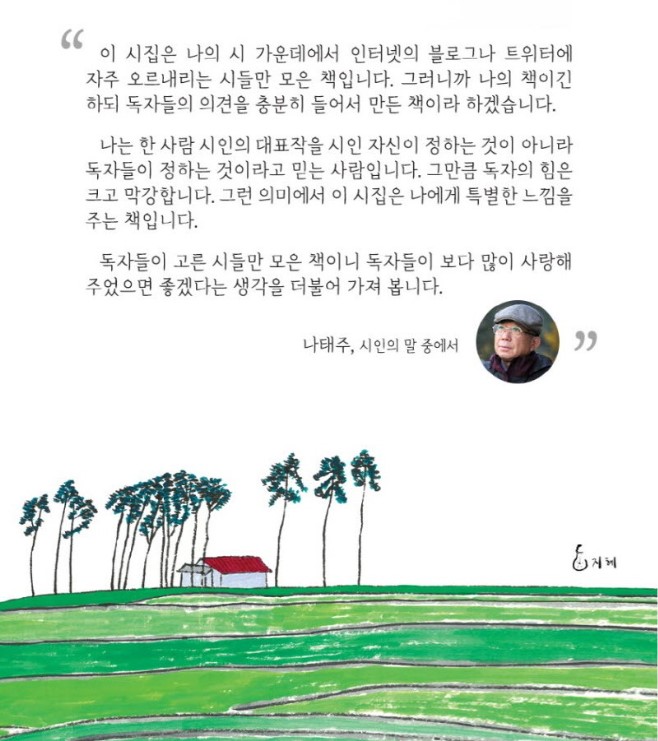 “
이 시집은 나의 시 가운데에서 인터넷의 블로그나 트위터에
자주 오르내리는 시들만 모은 책입니다. 그러니까 나의 책이긴
하되 독자들의 의견을 충분히 들어서 만든 책이라 하겠습니다.
나는 한 사람 시인의 대표작을 시인 자신이 정하는 것이 아니라
독자들이 정하는 것이라고 믿는 사람입니다. 그만큼 독자의 힘은
크고 막강합니다. 그런 의미에서 이 시집은 나에게 특별한 느낌을
주는 책입니다.
독자들이 고른 시들만 모은 책이니 독자들이 보다 많이 사랑해
주었으면 좋겠다는 생각을 더불어 가져 봅니다.
나태주, 시인의 말 중에서
”
지혜